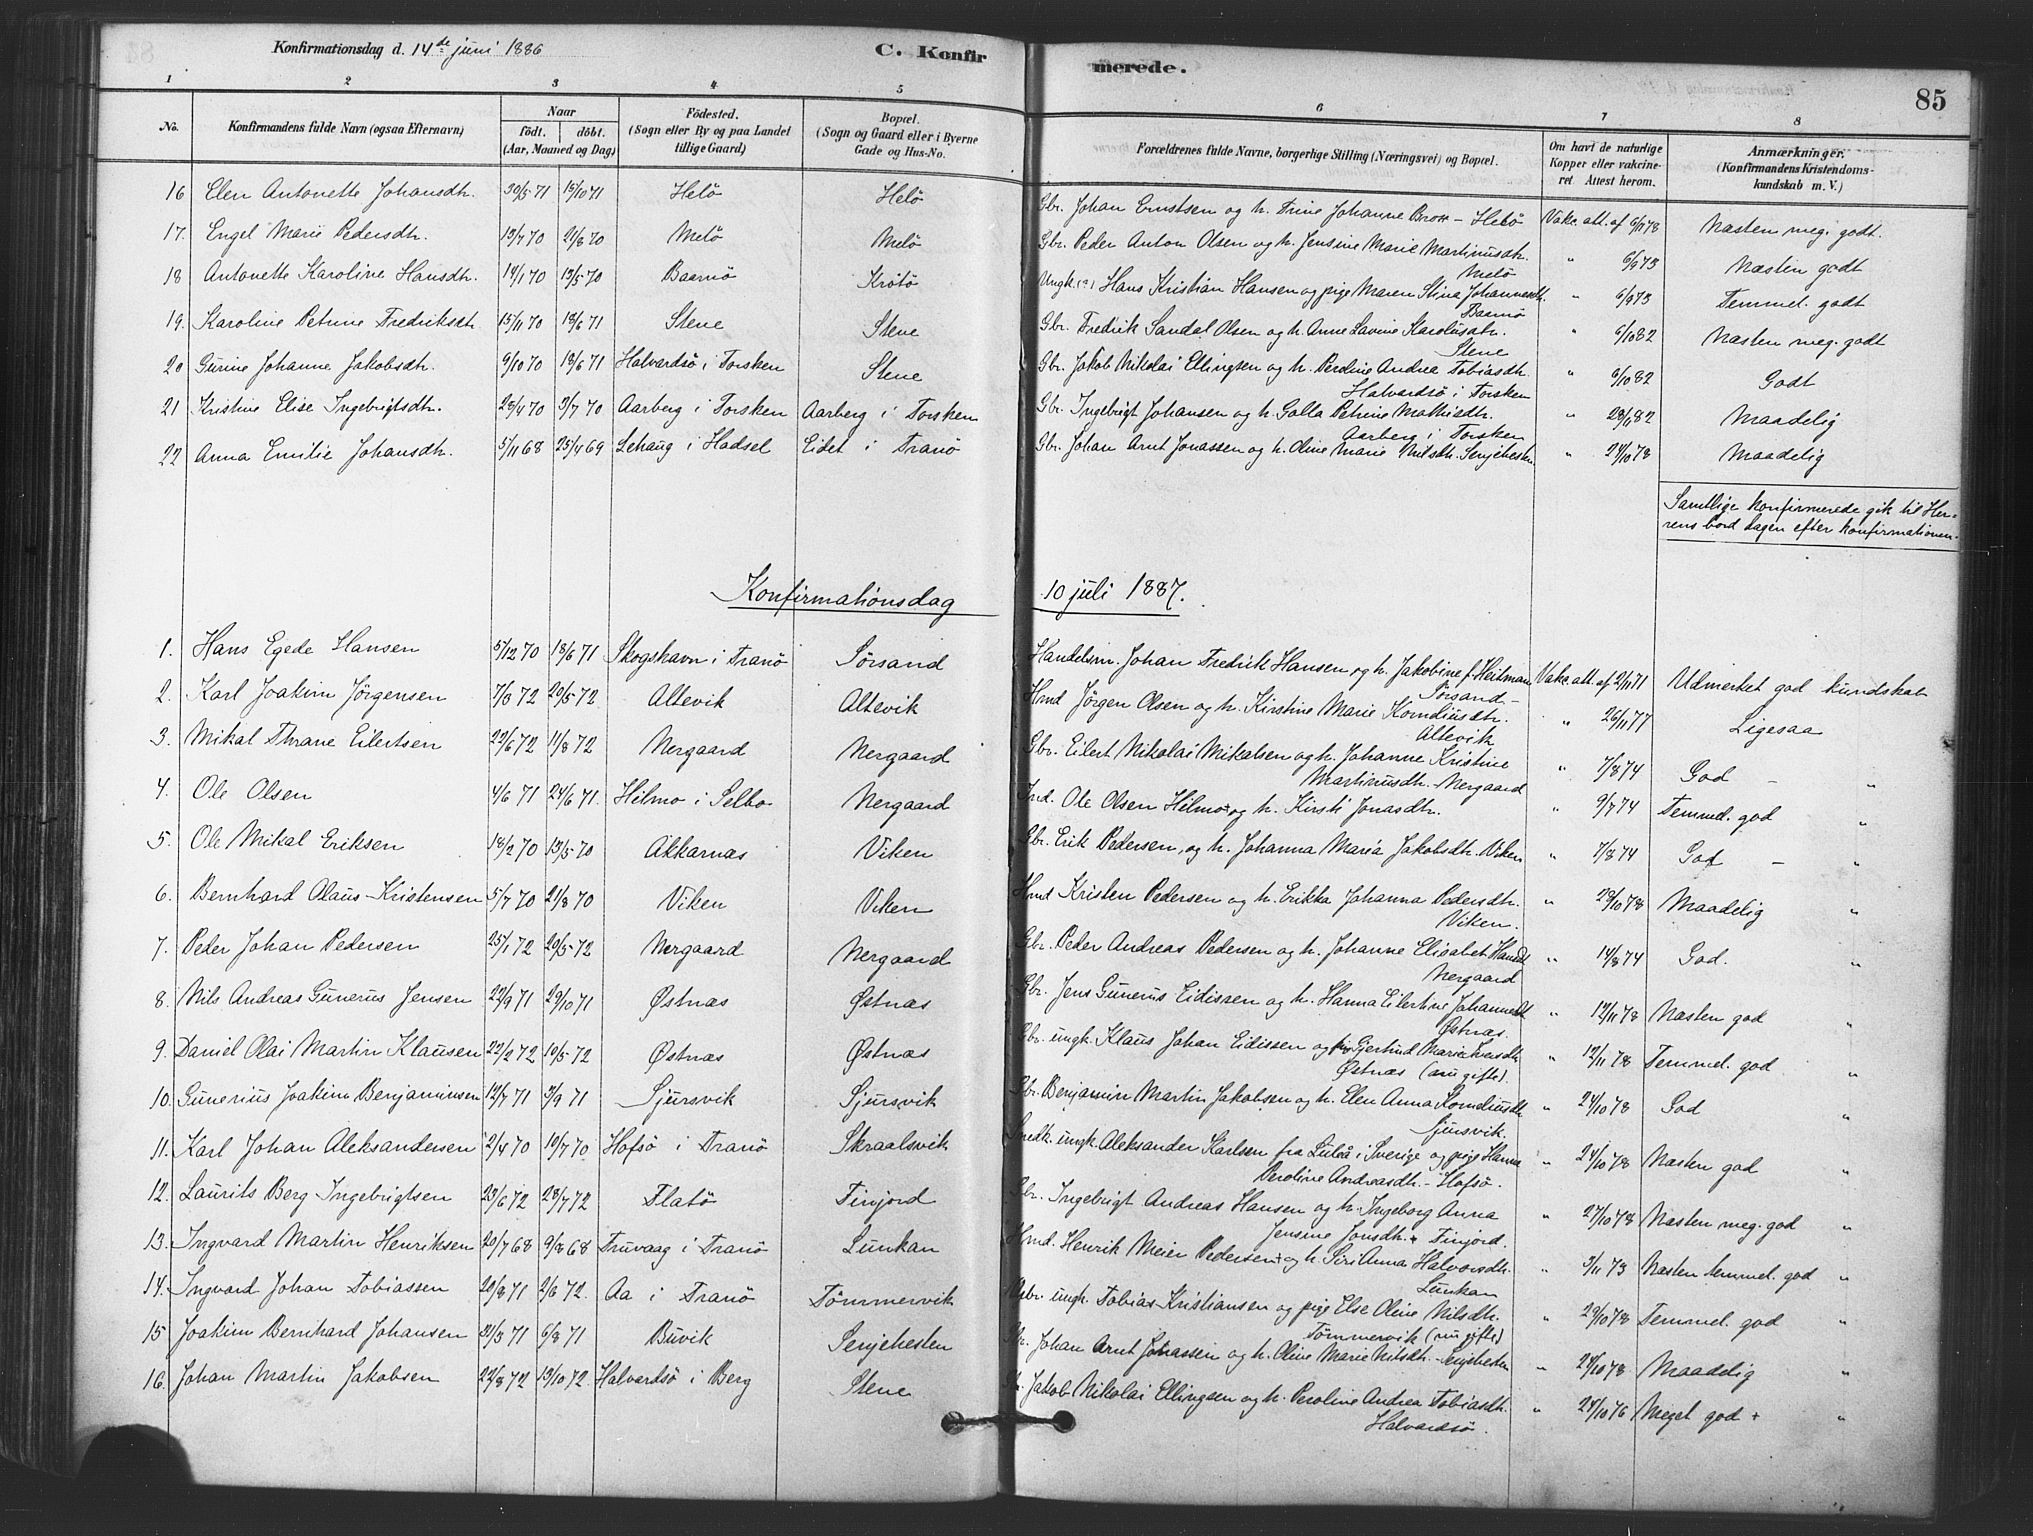 Konfirmationsdag d. 14de juni 1886
C. Konfirmerede.
85
1 2 3 4 5 6 7 8
No.
Konfirmandens fulde Navn (ogsaa Efternavn)
Naar
födt. döbt.
(Aar, Maaned og Dag)
Födested.
(Sogn eller By og paa Landet
tillige Gaard)
Bopæl.
(Sogn og Gaard eller i Byerne
Gade og Hus-No.
Forældrenes fulde Navne, borgerlige Stilling (Næringsvei) og Bopæl.
Om havt de naturlige
Kopper eller vakcine-
ret Attest herom.
Anmærkninger.
(Konfirmandens Kristendoms-
kundskab m. V.)
16 Elen Antonette Johansdtr. 30/5 71 15/10 71 Helö Helö Gbr. Johan Ernstsen og h. Trine Johanne Brox - Helö Vakc. att. af 6/11 78 Næsten meg. godt.
17. Engel Marie Pedersdtr. 13/7 70 21/8 70 Melö Melö Gbr. Peder Anton Olsen og h. Jensine Marie Martinusdtr. Melö " 6/9 73 Næsten godt
18 Antonette Karoline Hansdtr. 14/1 70 13/5 70 Baarnö Krötö Ungk. Hans Kristian Hansen og pige Maren Stina Johannesdtr. Baarnö " 6/9 73 Temmel. godt
19. Karoline Petrine Fredriksdtr 15/11 70 18/6 71 Stene Stene Gbr. Fredrik Sandal Olsen og h. Anne Lavine Karolusdtr. Stene " 6/10 82 Næsten meg. godt
20 Gurine Johanne Jakobsdtr. 9/10 70 18/6 71 Halvardsö i Torsken Stene Gbr. Jakob Nikolai Ellingsen og h. Peroline Andrea Tobiasdtr. Halvardsö i Torsken " 6/10 82 Godt
21 Kristine Elise Ingebrigtsdtr. 23/4 70 3/7 70 Aarberg i Torsken Aarberg i Torsken Gbr. Ingebrigt Johansen og h. Galla Petrine Mathisdtr. Aarberg i Torsken " 28/1 82 Maadelig
22 Anna Emilie Johansdtr. 5/11 68 25/4 69 Lehaug i Hadsel Eidet i Tranö Gbr. Johan Arnt Jonassen og h. Oline Marie Nilsdtr. Senjehesten " 24/10 78 Maadelig
Samtlige konfirmerede gik til Her-
rens bord dagen efter konfirmationen.
Konfirmationsdag 10 juli 1887.
1. Hans Egede Hansen 5/12 70 18/6 71 Skogshavn i Tranö Sörsand Handelsm. Johan Fredrik Hansen og h. Jakobine f. Heitman Sörsand - Vakc. att. af 2/11 71 Udmerket god kundskab
2. Karl Joakim Jörgensen 7/3 72 20/5 72 Altevik Altevik Hmd Jörgen Olsen og h. Kirstine Marie Korneliusdtr. Altevik " 26/11 77 Ligesaa
3. Mikal Thrane Eilertsen 22/6 72 11/8 72 Nergaard Nergaard Gbr. Eilert Nikolai Mikalsen og h. Johanne Kristine Martinusdtr. Nergaard " 7/8 74 God - "
4. Ole Olsen 4/6 71 24/6 71. Hilmo i Selbo Nergaard Ind. Ole Olsen Hilmo og h. Kirsti Jonasdtr. " 9/7 74 Temmel. god "
5. Ole Mikal Eriksen 18/2 70 13/5 70 Akkarnæs Viken Gbr. Erik Pedersen, og h. Johanna Maria Jakobsdtr. Viken " 7/8 74 God - "
6. Bernhard Olaus Kristensen 5/7 70 21/8 70 Viken Viken Hmd Kristen Pedersen og h. Erikka Johanna Pedersdtr. Viken. " 28/10 78 Maadelig "
7. Peder Johan Pedersen 25/1 72 20/5 72 Nergaard Nergaard Gbr. Peder Andreas Pedersen og h. Johanne Elisabet Hansdt Nergaard " 14/8 74 God. "
8. Nils Andreas Gunerus Jensen 22/9 71 29/10 71 Østnæs Østnæs Gbr. Jens Gunerus Eidissen og h. Hanna Eilertine Johannesdt Østnæs. " 12/11 78 Næsten god "
9. Daniel Olai Martin Klausen 22/2 72 10/5 72 Østnæs Østnæs Gbr. ungk. Klaus Johan Eidissen og Gjertrud Marie Iversdtr. Østnæs (nu gifte). " 12/11 78 Temmel. god "
10. Gunerius Joakim Benjaminsen 12/7 71 3/9 71 Sjursvik Sjursvik Gbr. Benjamin Martin Jakobsen og h. Elen Anna Korneliusdt Sjursvik. " 24/10 78 God "
11. Karl Johan Aleksandersen 2/4 70 10/7 70 Hofsö i Tranö Skraalsvik Smedk. ungk. Aleksander Karlsen fra Luleå i Sverige og pige Hanna Peroline Andreasdtr. - Hofsö. " 24/10 78 Næsten god "
12. Laurits Berg Ingebrigtsen 23/6 72 28/7 72 Flatö Finjord Gbr. Ingebrigt Andreas Hansen og h. Ingeborg Anna Jensine Jonsdtr. Finjord. " 27/10 78 Næsten meg. god "
13. Ingvard Martin Henriksen 20/7 68 9/8 68 Truvaag i Tranö Lunkan Hmd. Henrik Meier Pedersen og h. Siri Anna Halvorsdtr. Lunkan " 3/11 73 Næsten temmel. god "
14. Ingvard Johan Tobiassen 20/8 71 2/6 72. Aa i Tranö Tömmervik Gbr. ungk. Tobias Kristiansen og pige Else Oline Nilsdtr. Tömmervik (nu gifte) " 29/10 78 Temmel. god "
15 Joakim Bernhard Johansen 31/3 71 6/8 71 Buvik Senjehesten Gbr. Johan Arnt Jonassen og h. Oline Marie Nilsdtr. Senjehesten " 24/10 78 Maadelig "
16. Johan Martin Jakobsen 22/8 72 13/10 72. Halvardsö i Berg Stene Gbr. Jakob Nikolai Ellingsen og h. Peroline Andrea Tobiasdtr. Halvardsö. " 24/10 76 Meget god + "